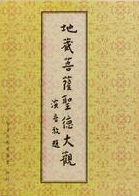 地藏菩薩聖德大觀
演音敬題